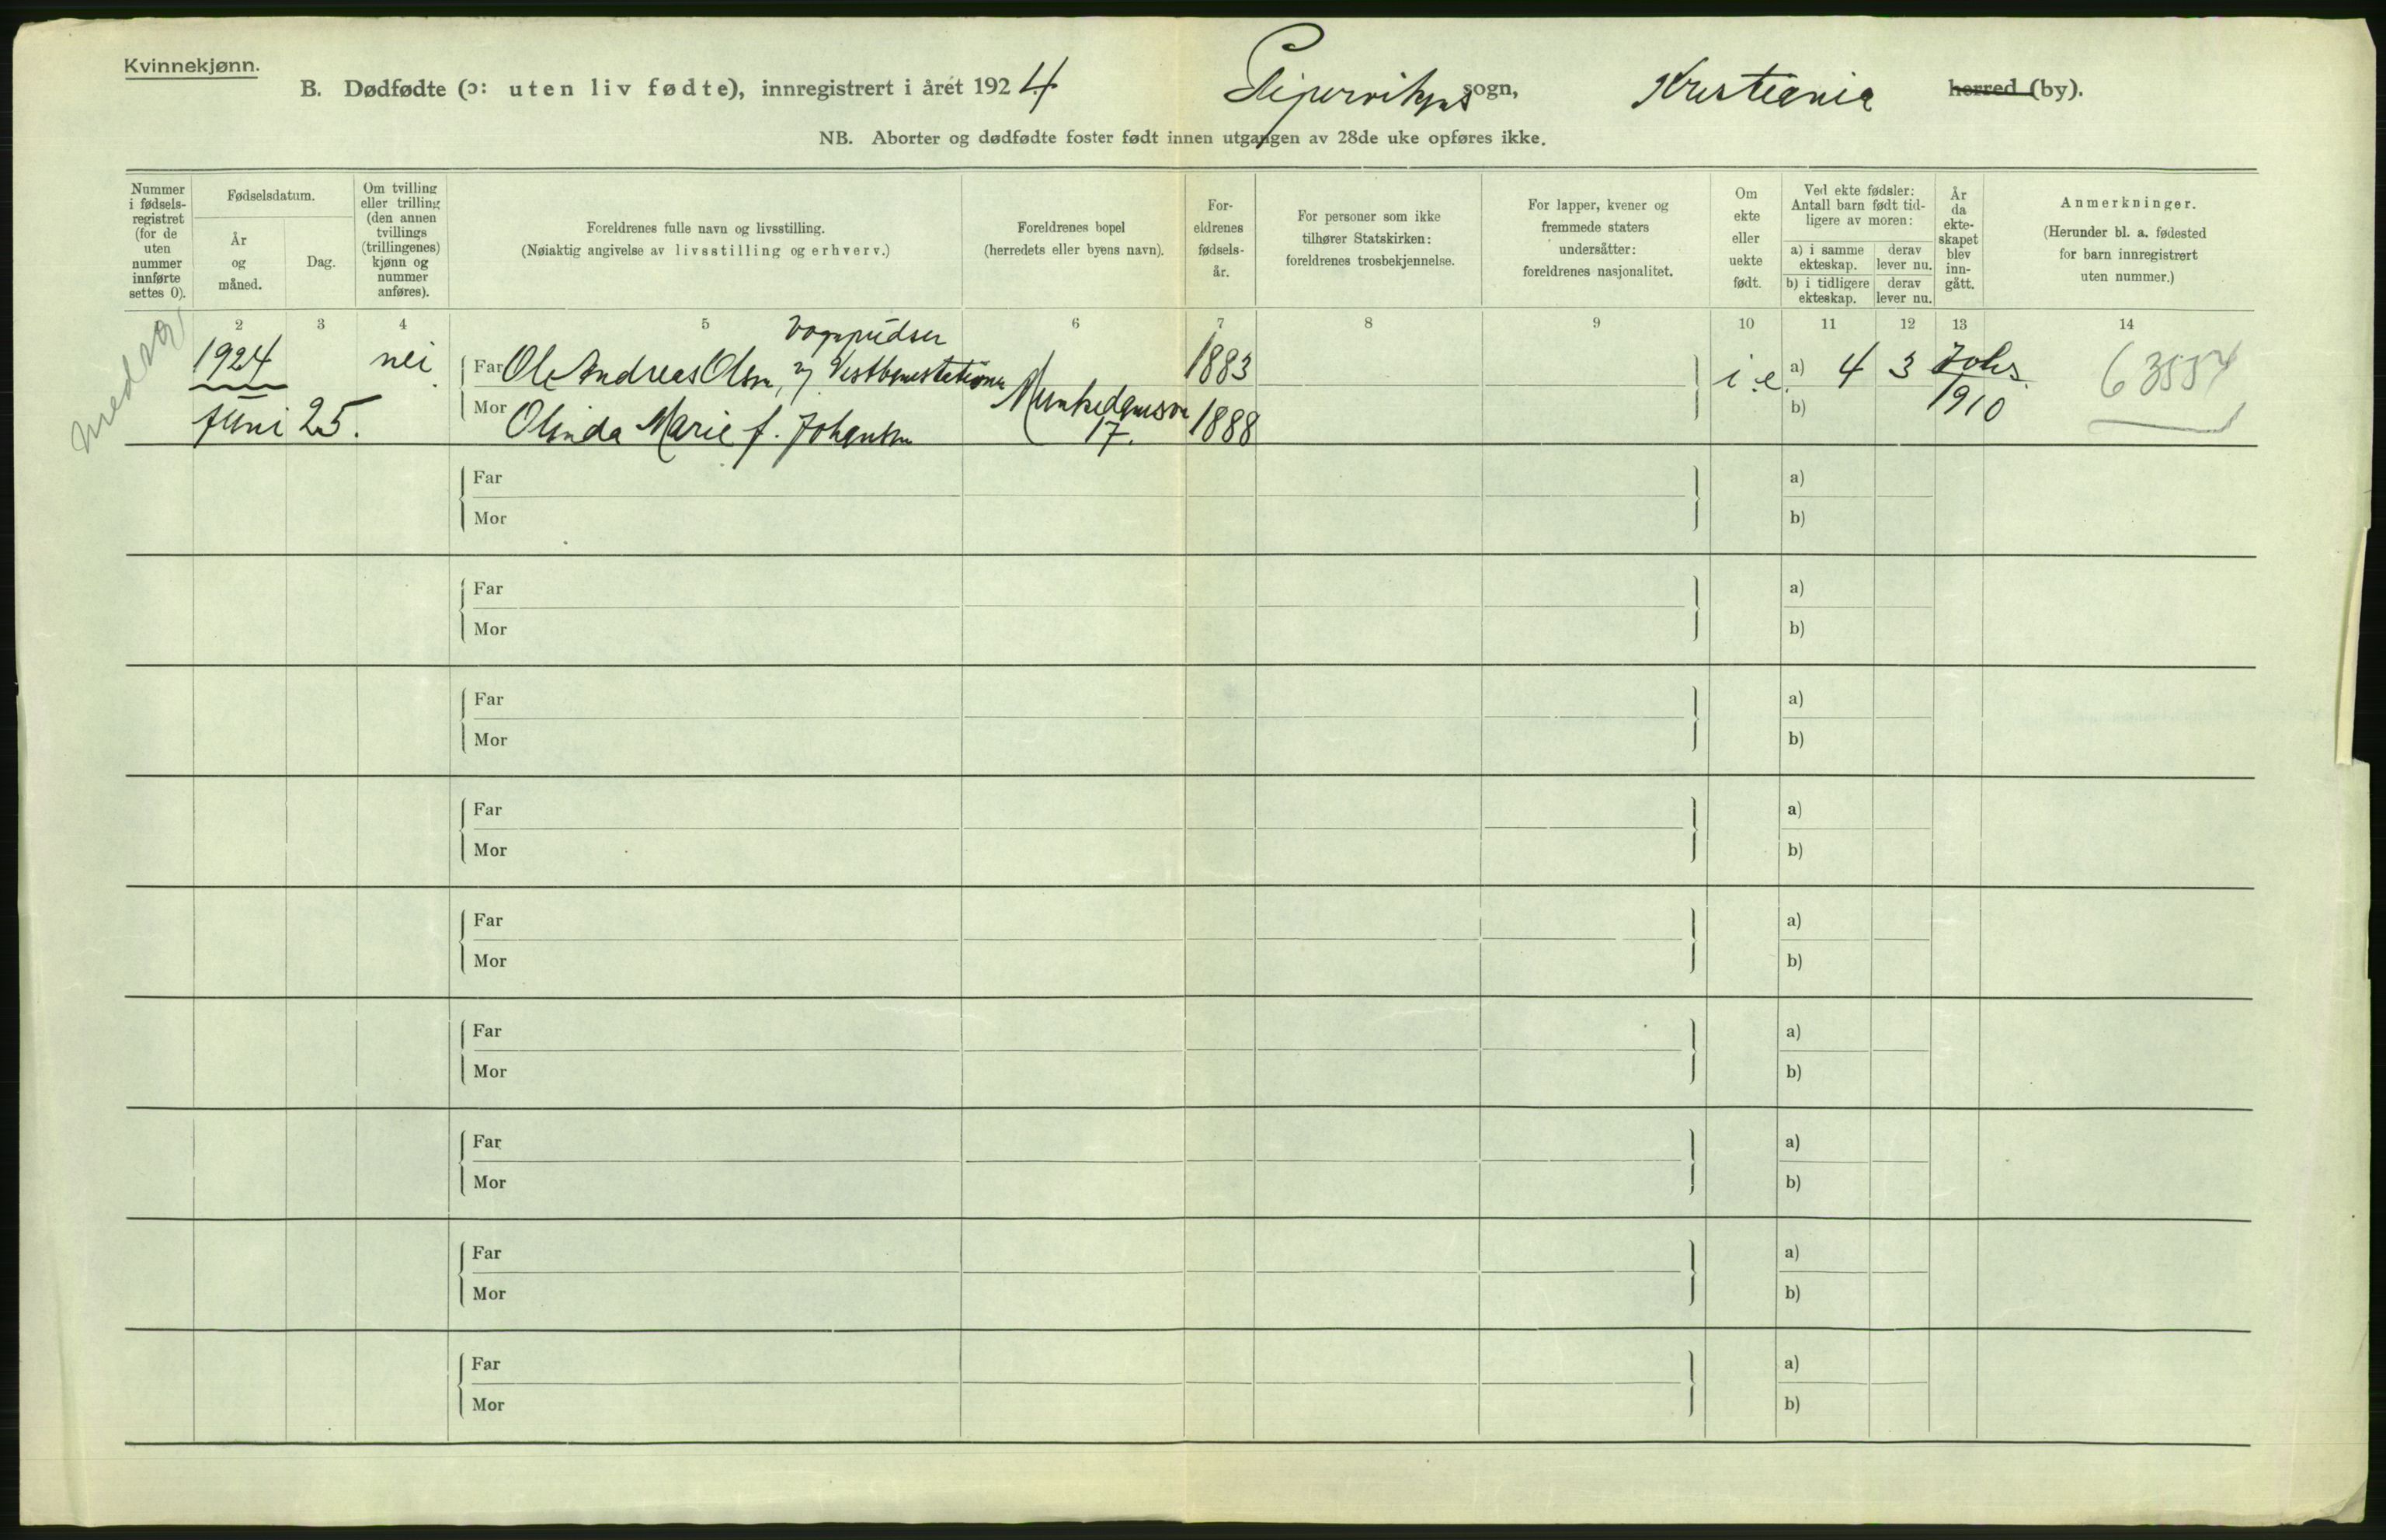 Kvinnekjønn.
B. Dødfødte (ɔ: uten liv fødte), innregistrert i året 1924 Pipervikens sogn, Kristiania herred (by).
NB. Aborter og dødfødte foster født innen utgangen av 28de uke opføres ikke.
Nummer i fødsels-registret (for de uten nummer innførte settes 0).
Fødselsdatum.
År og måned.
Dag.
Om tvilling eller trilling (den annen tvillings (trillingenes) kjønn og nummer anføres).
Foreldrenes fulle navn og livsstilling.
(Nøiaktig angivelse av livsstilling og erhverv.)
Foreldrenes bopel
(herredets eller byens navn).
For-eldrenes fødsels-år.
For personer som ikke tilhører Statskirken: foreldrenes trosbekjennelse.
For lapper, kvener og fremmede staters undersåtter: foreldrenes nasjonalitet.
Om ekte eller uekte født.
Ved ekte fødsler: Antall barn født tid-ligere av moren:
a) i samme ekteskap.
derav lever nu.
b) i tidligere ekteskap.
derav lever nu.
År da ekte-skapet blev inn-gått.
Anmerkninger.
(Herunder bl. a. fødested for barn innregistrert uten nummer.)
2 3 4 5 6 7 8 9 10 11 12 13 14
Vognpudser
1924 nei Far Ole Andreas Olsen, v/ Vestbanestationen 1883 i.e. a) 4 3 63554
juni 25. Mor Olinda Marie f. Johansen Munkedamsvn 17. 1888 b) 1910
Far a)
Mor b)
Far a)
Mor b)
Far a)
Mor b)
Far a)
Mor b)
Far a)
Mor b)
Far a)
Mor b)
Far a)
Mor b)
Far a)
Mor b)
Far a)
Mor b)